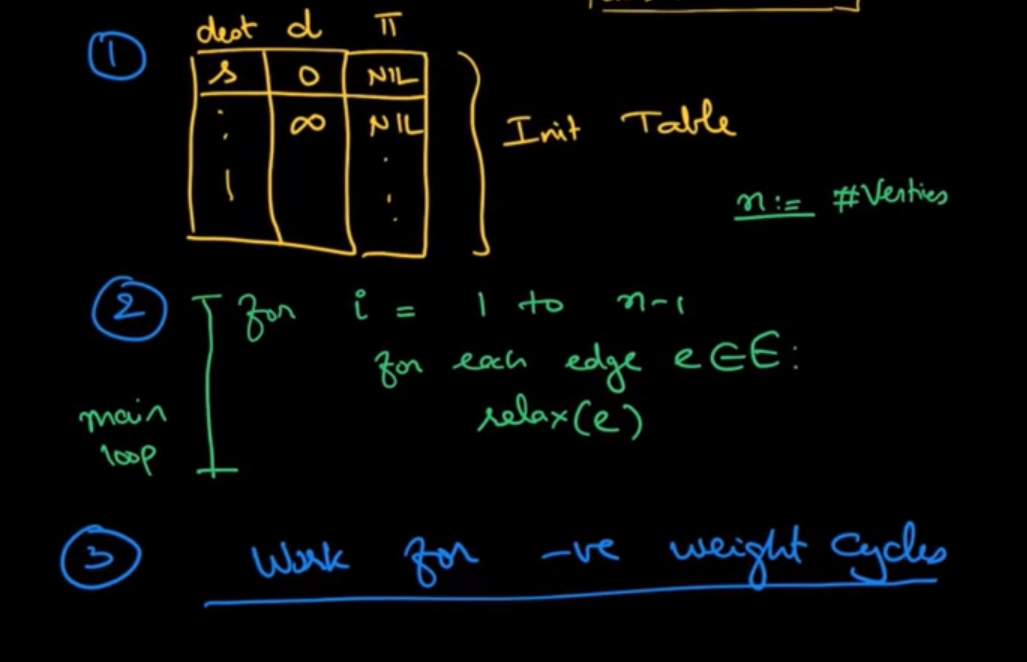 ① dest d π
s 0 NIL
: ∞ NIL
Init Table
n := #Verties
② for i = 1 to n-1
for each edge e ∈ E:
relax(e)
main
loop
③ Work for -ve weight cycles